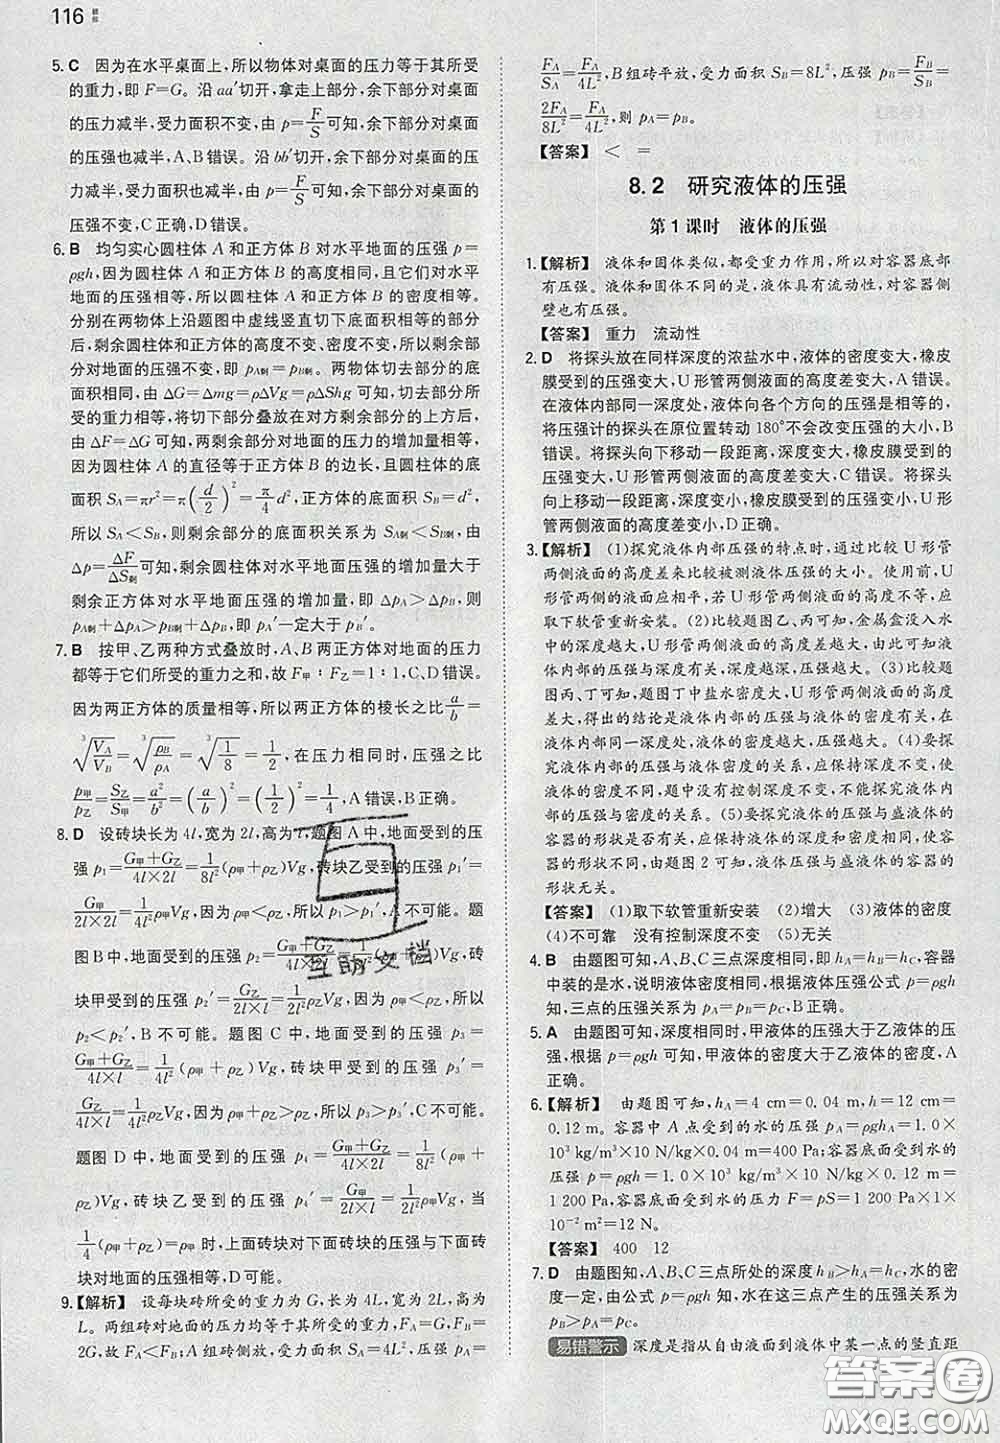 116
5. C 因为在水平桌面上,所以物体对桌面的压力等于其所受
的重力,即 F=G。沿 aa′切开,拿走上部分,余下部分对桌面
的压力减半,受力面积不变,由 p=F/S 可知,余下部分对桌面
的压强也减半,A、B错误。沿 bb′切开,余下部分对桌面的压
力减半,受力面积也减半,由 p=F/S 可知,余下部分对桌面的
压强不变,C正确,D错误。
6. B 均匀实心圆柱体 A 和正方体 B 对水平地面的压强 p=
ρgh,因为圆柱体 A 和正方体 B 的高度相同,且它们对水平
地面的压强相等,所以圆柱体 A 和正方体 B 的密度相等。
分别在两物体上沿题图中虚线竖直切下底面积相等的部分
后,剩余圆柱体和正方体的高度不变、密度不变,所以剩余部
分对地面的压强不变,即 pA剩=pB剩。两物体切去部分的底
面积和高度相等,由 ΔG=Δmg=ρΔVg=ρΔShg 可知,切去
的重力相等,将切下部分叠放在对方剩余部分的上方后,
由 ΔF=ΔG 可知,两剩余部分对地面的压力的增加量相等,
因为圆柱体 A 的直径等于正方体 B 的边长,且圆柱体的底
面积 SA=πr²=π(d/2)²=π/4 d²,正方体的底面积 SB=d²,
所以 SA<SB,则剩余部分的底面积关系为 SA剩<SB剩。由
Δp=ΔF/ΔS剩 可知,剩余圆柱体对水平地面压强的增加量大于
剩余正方体对水平地面压强的增加量,即 ΔpA>ΔpB,则
pA剩+ΔpA>pB剩+ΔpB,即 pA′一定大于 pB′。
7. B 按甲、乙两种方式叠放时,A、B 两正方体对地面的压力
都等于它们所受的重力之和,故 F甲:F乙=1:1,C、D错误。
因为两正方体的质量相等,所以两正方体的棱长之比 a/b=
∛(VA/VB)=∛(ρB/ρA)=∛(1/8)=1/2,在压力相同时,压强之比
p甲/p乙=S乙/S甲=a²/b²=(a/b)²=(1/2)²=1/4,A错误,B正确。
8. D 设砖块长为 4l,宽为 2l,高为 l,题图 A 中,地面受到的压
强 p1=(G甲+G乙)/(4l×2l)=1/8l²(ρ甲+ρ乙)Vg,砖块乙受到的压强 p1′=
G甲/(2l×2l)=1/4l² ρ甲Vg,因为 ρ甲<ρ乙,所以 p1>p1′,A 不可能。题
图 B 中,地面受到的压强 p2=(G甲+G乙)/(4l×2l)=1/8l²(ρ甲+ρ乙)Vg,砖
块甲受到的压强 p2′=G乙/(2l×l)=1/2l² ρ乙Vg,因为 ρ甲<ρ乙,所以
p2<p2′,B不可能。题图 C 中,地面受到的压强 p3=
(G甲+G乙)/(4l×l)=1/4l²(ρ甲+ρ乙)Vg,砖块甲受到的压强 p3′=
G乙/(4l×l)=1/4l² ρ乙Vg,因为 ρ甲+ρ乙>ρ乙,所以 p3>p3′,C不可能。
题图 D 中,地面受到的压强 p4=(G甲+G乙)/(4l×2l)=1/8l²(ρ甲+
ρ乙)Vg,砖块乙受到的压强 p4′=G甲/(2l×l)=1/2l² ρ甲Vg,当
1/4(ρ甲+ρ乙)=ρ甲时,上面砖块对下面砖块的压强与下面砖
块对地面的压强相等,D可能。
9.【解析】 设每块砖所受的重力为 G,长为 4L,宽为 2L,高为
L。两组砖对地面的压力均等于其所受的重力,FA=G,FB=
2G,故 FA<FB;A 组砖侧放,受力面积 SA=4L²,压强 pA=
FA/SA=FA/4L²,B组砖平放,受力面积 SB=8L²,压强 pB=FB/SB=
2FA/8L²=FA/4L²,则 pA=pB。
【答案】 < =
8.2 研究液体的压强
第1课时 液体的压强
1.【解析】 液体和固体类似,都受重力作用,所以对容器底部
有压强。液体和固体不同的是,液体具有流动性,对容器侧
壁也有压强。
【答案】 重力 流动性
2. D 将探头放在同样深度的浓盐水中,液体的密度变大,橡皮
膜受到的压强变大,U形管两侧液面的高度差变大,A错误。
在液体内部同一深度处,液体向各个方向的压强是相等的,
将压强计的探头在原位置转动 180°不会改变压强的大小,B
错误。将探头向下移动一段距离,深度变大,橡皮膜受到的
压强变大,U形管两侧液面的高度差变大,C错误。将探头
向上移动一段距离,深度变小,橡皮膜受到的压强变小,U形
管两侧液面的高度差变小,D正确。
3.【解析】 (1)探究液体内部压强的特点时,通过比较 U 形管
两侧液面的高度差来比较被测液体压强的大小。使用前,U
形管两侧液面应相平,若 U 形管两侧液面的高度不等,应
取下软管重新安装。(2)比较题图乙、丙可知,金属盒没入水
中的深度越大,U形管两侧液面的高度差越大,说明液体内
部的压强与深度有关,深度越深,压强越大。(3)比较题
图丙、丁可知,题图丁中盐水密度大,U形管两侧液面的高度
差大,得出的结论是液体内部的压强与液体的密度有关,在
液体内部同一深度处,液体的密度越大,压强越大。(4)要探
究液体内部的压强与液体密度的关系,应控制深度不变,而
题中没有控制深度不变,不能探究液体内部的压强与液体密
度的关系,故结论不可靠。(5)要探究液体压强与盛液体的
容器的形状是否有关,应保持液体的深度和密度相同,使容
器的形状不同,由题图2可知,液体的压强与盛液体的容器的
形状无关。
【答案】 (1)取下软管重新安装 (2)增大 (3)液体的密度
(4)不可靠 没有控制深度不变 (5)无关
4. B 由题图可知,A、B、C 三点深度相同,即 hA=hB=hC,容器
中装的是水,说明液体密度相同,根据液体压强公式 p=ρgh
可知,三点的压强关系为 pA=pB=pC,B正确。
5. A 由题图可知,深度相同时,甲液体的压强大于乙液体的压
强,根据 p=ρgh 可知,甲液体的密度大于乙液体的密度,A
正确。
6.【解析】 由题图可知,hA=4 cm=0.04 m,h=12 cm=
0.12 m。容器中 A 点受到的水的压强 pA=ρghA=1.0×
10³ kg/m³×10 N/kg×0.04 m=400 Pa;容器底面受到水的
压强 p=ρgh=1.0×10³ kg/m³×10 N/kg×0.12 m=
1 200 Pa,容器底面受到水的压力 F=pS=1 200 Pa×1×
10⁻² m²=12 N。
【答案】 400 12
7. D 由题图知,A、B、C 三点所处的深度 hB>hA=hC,水的密
度一定,由公式 p=ρgh 知,水在这三点产生的压强关系为
pB>pA=pC。
易错警示 深度是指从自由液面到液体中某一点的竖直距
互助文档
答案圈
MXQE.COM